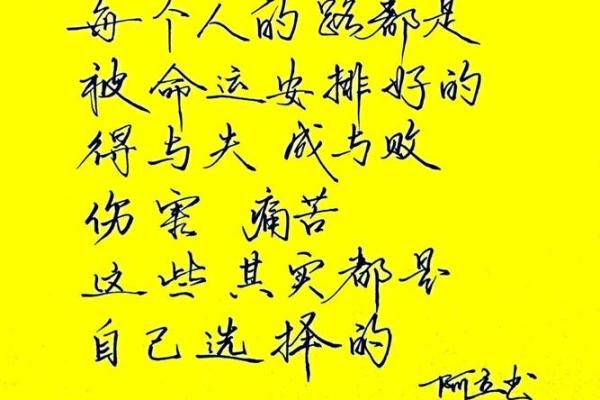 每个人的路都是
被命运安排好的
得与失 成与败
伤害 痛苦
这些其实都是
自己选择的
阿立书